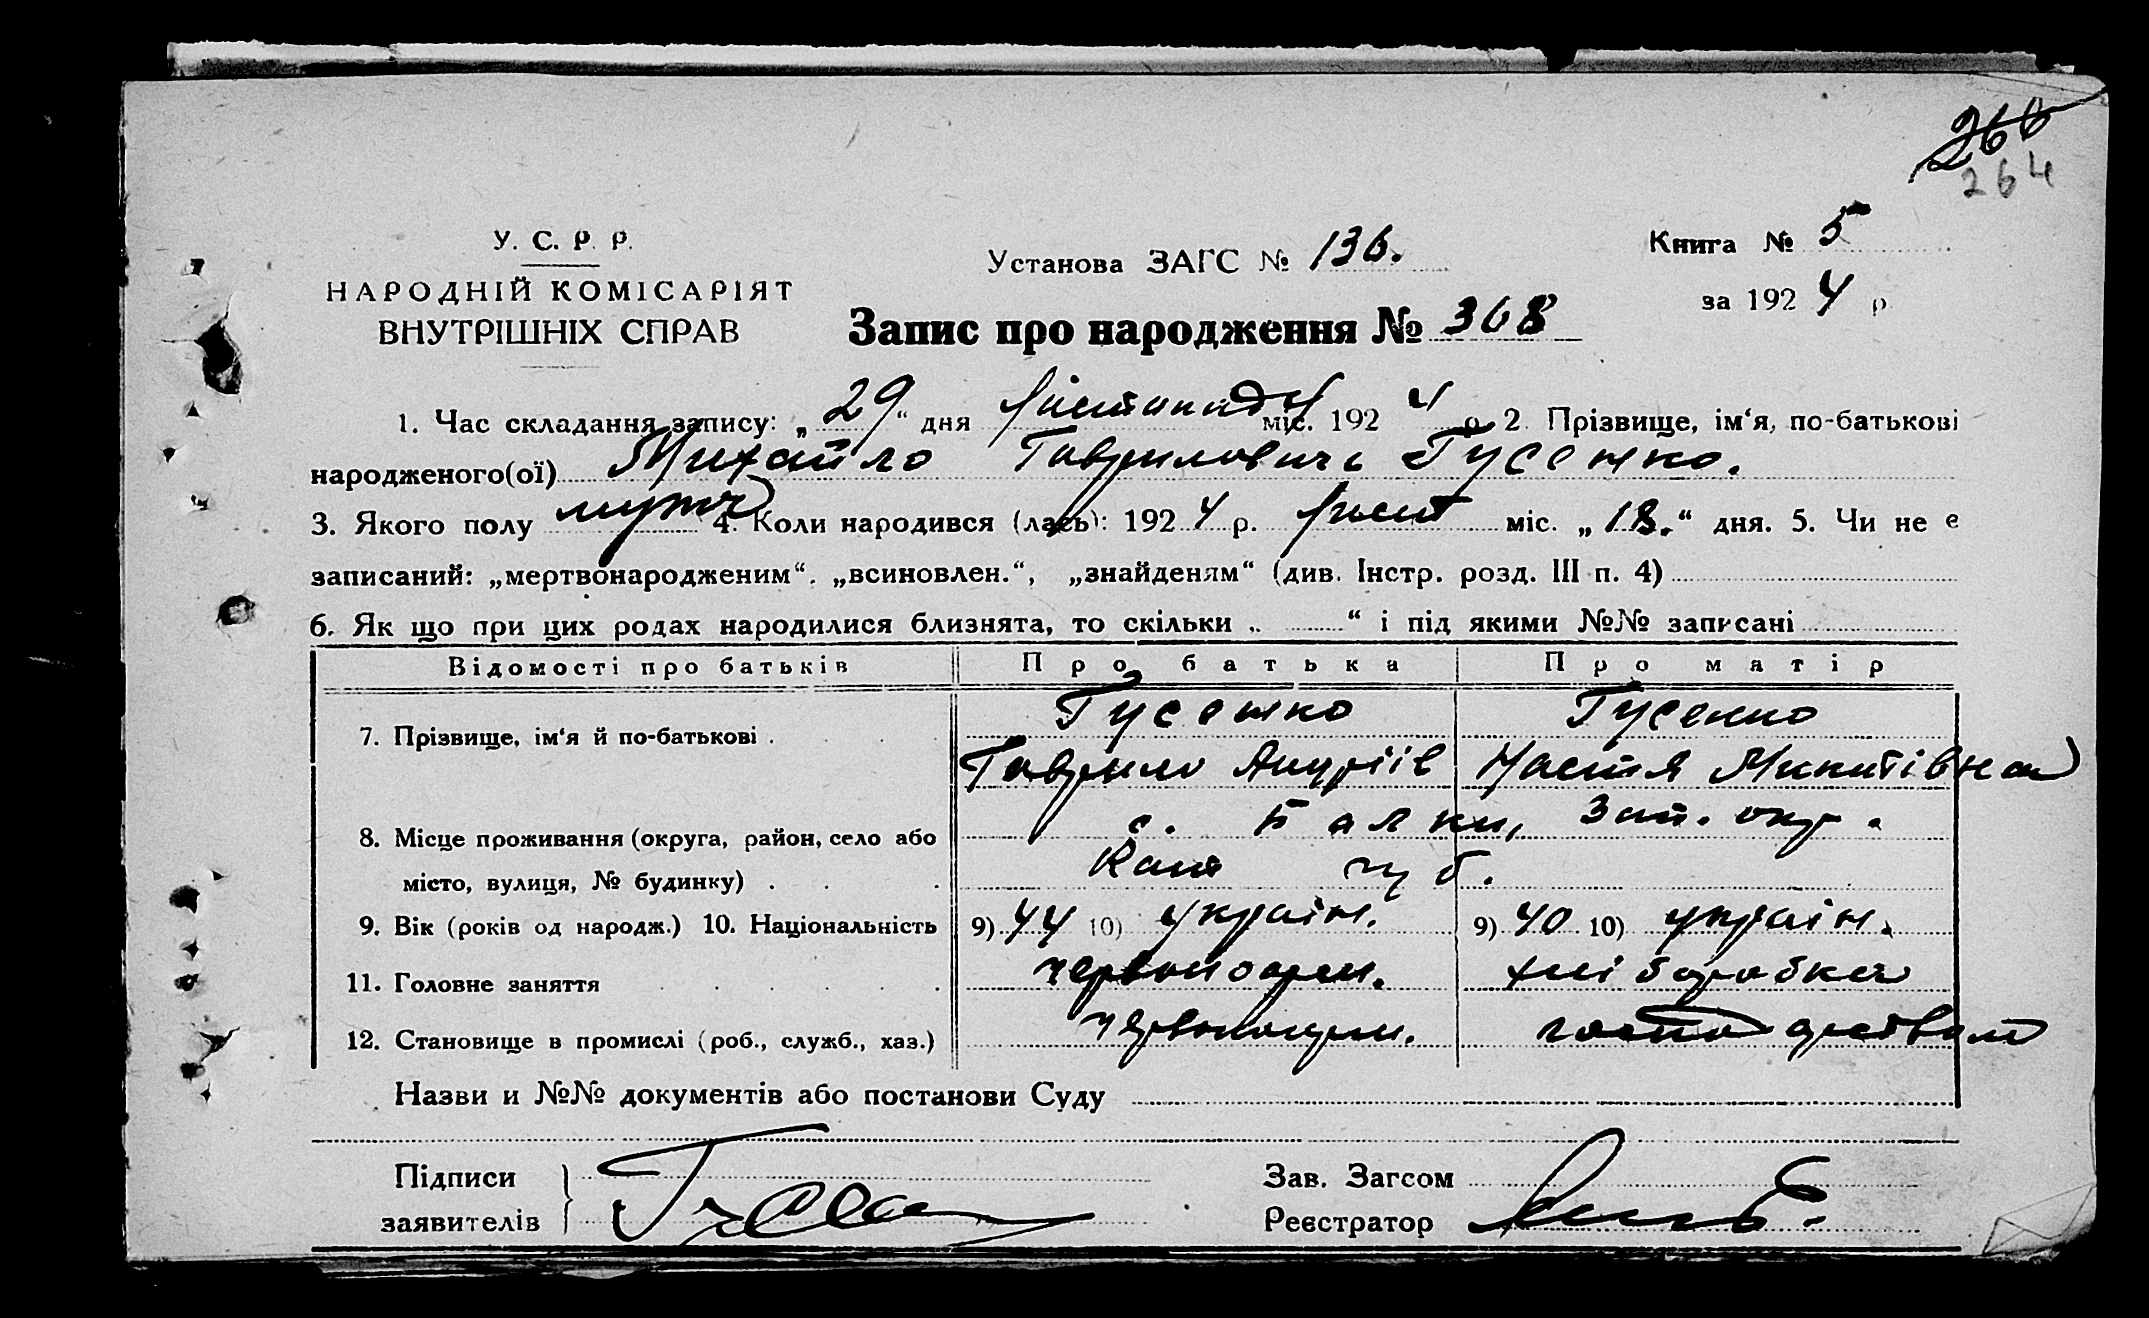 266
264
У. С. Р. Р.
НАРОДНІЙ КОМІСАРІЯТ
ВНУТРІШНІХ СПРАВ
Установа ЗАГС № 136.
Книга № 5
за 1924 р
Запис про народження № 368
1. Час складання запису: „29“ дня листопаду міс. 1924 р. 2. Прізвище, ім‘я, по-батькові
народженого(ої) Михайло Гаврилович Гусенко.
3. Якого полу муж 4. Коли народився (лась): 1924 р. лист міс. „18.“ дня. 5. Чи не є
записаний: „мертвонародженим“, „всиновлен.“, „знайденям“ (див. Інстр. розд. III п. 4)
6. Як що при цих родах народилися близнята, то скільки „ “ і під якими №№ записані
Відомості про батьків Про батька Про матір
7. Прізвище, ім‘я й по-батькові . Гусенко Гусенко
Гаврило Андріїв Настя Микитівна
8. Місце проживання (округа, район, село або с. Балки, Зап. окр.
місто, вулиця, № будинку) . . . Кат губ.
9. Вік (років од народж.) 10. Національність 9) 44 10) україн. 9) 40 10) україн.
11. Головне заняття червоноарм. хліборобка
12. Становище в промислі (роб., служб., хаз.) червоноарм.
Назви и №№ документів або постанови Суду
Підписи
заявителів
Зав. Загсом
Реєстратор